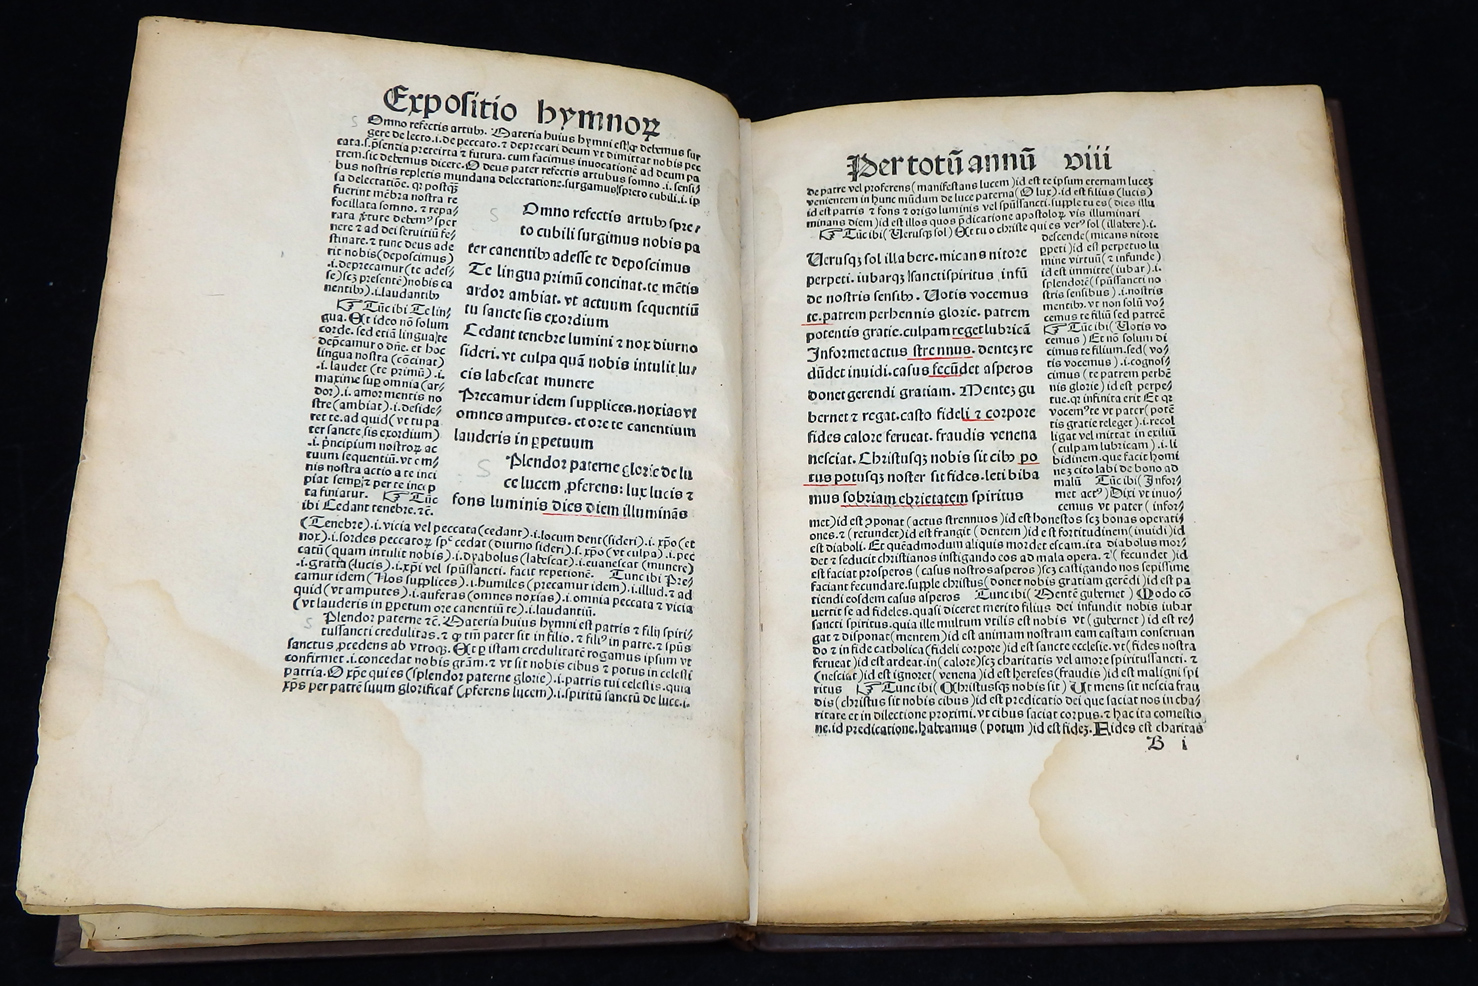 Expositio hymnoꝝ
S Omno refectis artubꝰ. Materia huius hymni est ꝙ debemus sur
gere de lecto .i. de peccato. ⁊ deprecari deum vt dimittat nobis pec
cata .s. p̃sentia preterita ⁊ futura. cum facimus inuocationẽ ad deum pa
trem. sic debemus dicere. O deus pater refectis artubus somno .i. sensi⸗
bus nostris repletis mundana delectatione. surgamus spreto cubili .i. ip
sa delectatiõe. qꝛ postq̃
fuerint mẽbra nostra re
focillata somno. ⁊ repa⸗
rata debemꝰ sper
nere ⁊ ad dei seruitiũ fe⸗
stinare. ⁊ tunc deus ade
rit nobis (deposcimus)
.i. deprecamur (te ades⸗
se) scꝫ presentẽ) nobis ca
nentibꝰ) .i. laudantibꝰ
☞ Tũc ibi Te lin⸗
gua. Et ideo nõ solum
corde. sed etiã lingua te
dep̃camur o dñe. et hoc
lingua nostra (cõcinat)
.i. laudet (te primũ) .i.
maxime suꝑ omnia (ar⸗
dor) .i. amor mentis no
stre (ambiat) .i. deside⸗
ret te. ad quid (vt tu pa
ter sancte sis exordium)
.i. p̃ncipium nostroꝝ ac
tuum sequentiũ. vt e m⸗
nis nostra actio a te inci
piat semꝑ ⁊ per te inci p
ta finiatur. ☞ Tũc
ibi Cedant tenebre. ⁊c.
Omno refectis artubꝰ spre⸗
to cubili surgimus nobis pa
ter canentibꝰ adesse te deposcimus
Te lingua primũ concinat. te mẽtis
ardor ambiat. vt actuum sequentiũ
tu sancte sis exordium
Cedant tenebre lumini ⁊ nox diurno
sideri. vt culpa quã nobis intulit lu⸗
cis labescat munere
Precamur idem supplices. noxias vt
omnes amputes. et ore te canentium
lauderis in ꝑpetuum
S Plendor paterne glorie de lu
ce lucem ꝓferens: lux lucis ⁊
fons luminis dies diem illuminãs
(Tenebre) .i. vicia vel peccata (cedant) .i. locum dent (sideri) .i. xp̃o (et
nox) .i. sordes peccatoꝝ cedat (diurno sideri) .s. xp̃o (vt culpa) .i. pec
catũ (quam intulit nobis) .i. dyabolus (labescat) .i. euanescat (munere)
.i. gratia (lucis) .i. xp̃i vel spũssancti. facit repetionẽ. Tunc ibi Pre⸗
camur idem (Nos supplices) .i. humiles (precamur idem) .i. illud. ⁊ ad
quid (vt amputes) .i. auferas (omnes noxias) .i. omnia peccata ⁊ vicia
(vt lauderis in ꝑpetum ore canentiũ te) .i. laudantiũ.
S Plendor paterne ⁊c̃. Materia huius hymni est patris ⁊ filij spiri⸗
tussancti credulitas. ⁊ ꝙ tm̃ pater sit in filio. ⁊ filiꝰ in patre. ⁊ spũs
sanctus ꝓcedens ab vtroqꝫ. Et ꝑ istam credulitatẽ rogamus ipsum vt
confirmet .i. concedat nobis grãm. ⁊ vt sit nobis cibus ⁊ potus in celesti
patria. O xp̃e qui es (splendor paterne glorie) .i. patris tui celestis. quia
xp̃s per patrẽ suum glorificat (ꝓferens lucem) .i. spiritũ sanctũ de luce .i.
Per totũ annũ viii
de patre vel proferens (manifestans lucem) id est te ipsum eternam lucẽ
venientem in hunc mũdum de luce paterna (O lux) id est filius (lucis)
id est patris ⁊ fons ⁊ origo luminis vel spũssancti. supple tu es (dies illu
minans diem) id est illos quos p̃dicatione apostoloꝝ vis illuminari
☞ Tũc ibi (Uerusqꝫ sol) Et tu o christe qui es verꝰ sol (illabere) .i.
descende (micans nitore
ꝑpeti) id est perpetuo lu
mine virtuũ (⁊ infunde)
id est immitte (iubar) .i.
splendorẽ (spũssancti no
stris sensibus) .i. nostris
mentibꝰ. vt non solũ vo⸗
cemus te filiũ sed patrẽ
☞ Tũc ibi (Uotis vo
cemus) Et nõ solum di
cimus te filium. sed (vo⸗
tis vocemus) .i. cognos⸗
cimus (te patrem perhẽ
nis glorie) id est perpe⸗
tue. qꝛ infinita erit Et qꝛ
vocemꝰ te vt pater (potẽ
tis gratie releget) .i. recol
ligat vel mittat in exiliũ
(culpam lubricam) .i. li
bidinem. que facit homi
neꝫ cito labi de bono ad
malũ Tũc ibi (Infor⸗
met actꝰ) Dixi vt inuo⸗
cemus vt pater (infor⸗
Uerusqꝫ sol illabere. micans nitore
perpeti. iubarqꝫ sancti spiritus infũ
de nostris sensibꝰ. Uotis vocemus
te. patrem perhennis glorie. patrem
potentis gratie. culpam reget lubricã
Informet actus strennus. denteꝫ re
dũdet inuidi. casus fecũdet asperos
donet gerendi gratiam. Menteꝫ gu
bernet ⁊ regat. casto fideli ⁊ corpore
fides calore ferueat. fraudis venena
nesciat. Christusqꝫ nobis sit cibꝰ po
tus potusqꝫ noster sit fides. leti biba
mus sobriam ebrietatem spiritus
met) id est ꝓponat (actus strennuos) id est honestos scꝫ bonas operati⸗
ones. ⁊ (retundet) id est frangit (dentem) id est fortitudinem (inuidi) id
est diaboli. Et quẽadmodum aliquis mordet escam. ita diabolus mor⸗
det ⁊ seducit christianos instigando eos ad mala opera. ⁊ (fecundet) id
est faciat prosperos (casus nostros asperos) scꝫ castigando nos sepissime
faciant fecundare. supple christus (donet nobis gratiam gerẽdi) id est pa
tiendi eosdem casus asperos Tunc ibi (Mentẽ gubernet) Modo cõ
uertit se ad fideles. quasi diceret merito filius dei infundit nobis iubar
sancti spiritus. quia ille multum vtilis est nobis vt (gubernet) id est re⸗
gat ⁊ disponat (mentem) id est animam nostram eam castam conseruan
do ⁊ in fide catholica (fideli corpore) id est sancte ecclesie. vt (fides nostra
ferueat) id est ardeat. in (calore) scꝫ charitatis vel amore spiritussancti. ⁊
(nesciat) id est ignoret (venena) id est hereses (fraudis) id est maligni spi
ritus ☞ Tunc ibi (Christusqꝫ nobis sit) Ut mens sit nescia frau
dis (christus sit nobis cibus) id est predicatio dei que saciat nos in cha⸗
ritate et in dilectione proximi. vt cibus saciat corpus. ⁊ hac ita comestio
ne. id predicatione. habeamus (potum) id est fideꝫ. Fides est charitas
B i